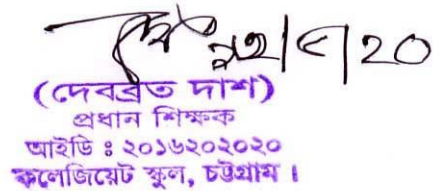 (দেবব্রত দাশ)
প্রধান শিক্ষক
আইডি ঃ ২০১৬২০২০২০
কলেজিয়েট স্কুল, চট্টগ্রাম।